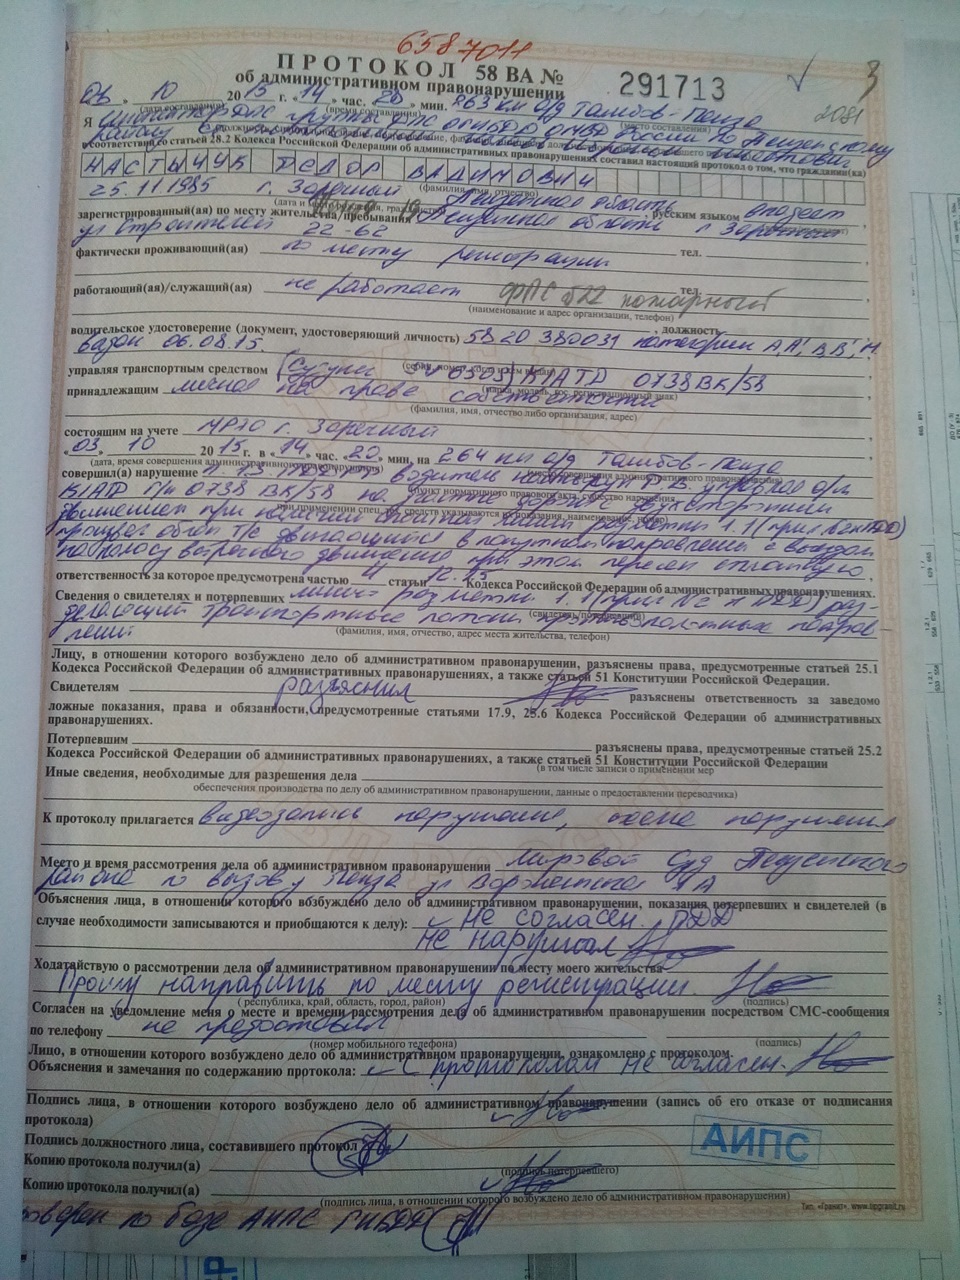 6587011
ПРОТОКОЛ 58 ВА № 291713
об административном правонарушении
3
2081
10 2015 г. «14» час. 20 мин. 263 км а/д Тамбов-Пенза
(дата составления) (время составления) (место составления)
Я ДПС ГИБДД России по Пензенскому
району
в соответствии со статьей 28.2 Кодекса Российской Федерации об административных правонарушениях составил настоящий протокол о том, что гражданин(ка)
НАСТЫЧУК ФЕДОР ВАДИМОВИЧ
(фамилия, имя, отчество)
25.11.1985 г. Заречный Пензенская область, русским языком владеет
зарегистрированный(ая) по месту жительства/пребывания Пензенская область г Заречный
ул Строителей 22-62
фактически проживающий(ая) по месту регистрации тел.
работающий(ая)/служащий(ая) не работает тел.
пожарный
(наименование и адрес организации, телефон)
, должность
водительское удостоверение (документ, удостоверяющий личность) 58 20 380031 категории А, А1, В, В1, М
выдан 06.08.15.
управляя транспортным средством КИАТД 0738ВК/58
принадлежащим на праве собственности
(фамилия, имя, отчество либо организация, адрес)
состоящим на учете МРЭО г. Заречный
«03» 10 2015 г. в «14» час. «20» мин, на 264 км а/д Тамбов-Пенза
(дата, время совершения административного правонарушения)
совершил(а) нарушение п. 1.3 ПДД водитель управляя а/м
г/н 0738 ВК/58 на участке дороги с двухсторонним
движением при наличии сплошной линии разметки 1.1 (прил 2 к ПДД)
произвел обгон т/с движущийся в попутном направлении с выездом
на полосу встречного движения при этом пересек сплошную
ответственность за которое предусмотрена частью 4 статьи 12.15 Кодекса Российской Федерации об административных правонарушениях.
Сведения о свидетелях и потерпевших линию разметки 1.1 (прил № 2 к ПДД) раз-
деляющий транспортные потоки противоположных направ-
лений
(фамилия, имя, отчество, адрес места жительства, телефон)
Лицу, в отношении которого возбуждено дело об административном правонарушении, разъяснены права, предусмотренные статьей 25.1
Кодекса Российской Федерации об административных правонарушениях, а также статьей 51 Конституции Российской Федерации.
разъяснил
Свидетелям разъяснены ответственность за заведомо
ложные показания, права и обязанности, предусмотренные статьями 17.9, 25.6 Кодекса Российской Федерации об административных
правонарушениях.
Потерпевшим разъяснены права, предусмотренные статьей 25.2
Кодекса Российской Федерации об административных правонарушениях, а также статьей 51 Конституции Российской Федерации
(в том числе записи о применении мер
Иные сведения, необходимые для разрешения дела
обеспечения производства по делу об административном правонарушении, данные о предоставлении переводчика)
К протоколу прилагается видеозапись нарушения, схема нарушения
Место и время рассмотрения дела об административном правонарушении мировой суд Пензенского
района по вызову Пенза ул Воронежская 1А
Объяснения лица, в отношении которого возбуждено дело об административном правонарушении, показания потерпевших и свидетелей (в
случае необходимости записываются и приобщаются к делу): Не согласен. ПДД
не нарушал
Ходатайствую о рассмотрении дела об административном правонарушении по месту моего жительства
Прошу направить по месту регистрации
(республика, край, область, город, район) (подпись)
Согласен на уведомление меня о месте и времени рассмотрения дела об административном правонарушении посредством СМС-сообщения
по телефону не предоставил
(номер мобильного телефона) (подпись)
Лицо, в отношении которого возбуждено дело об административном правонарушении, ознакомлено с протоколом.
Объяснения и замечания по содержанию протокола: С протоколом не согласен.
Подпись лица, в отношении которого возбуждено дело об административном правонарушении (запись об его отказе от подписания
протокола)
Подпись должностного лица, составившего протокол
АИПС
Копию протокола получил(а)
(подпись потерпевшего)
Копию протокола получил(а)
(подпись лица, в отношении которого возбуждено дело об административном правонарушении)
Тип. «Гранит». www.lipgranit.ru
по базе АИПС ГИБДД